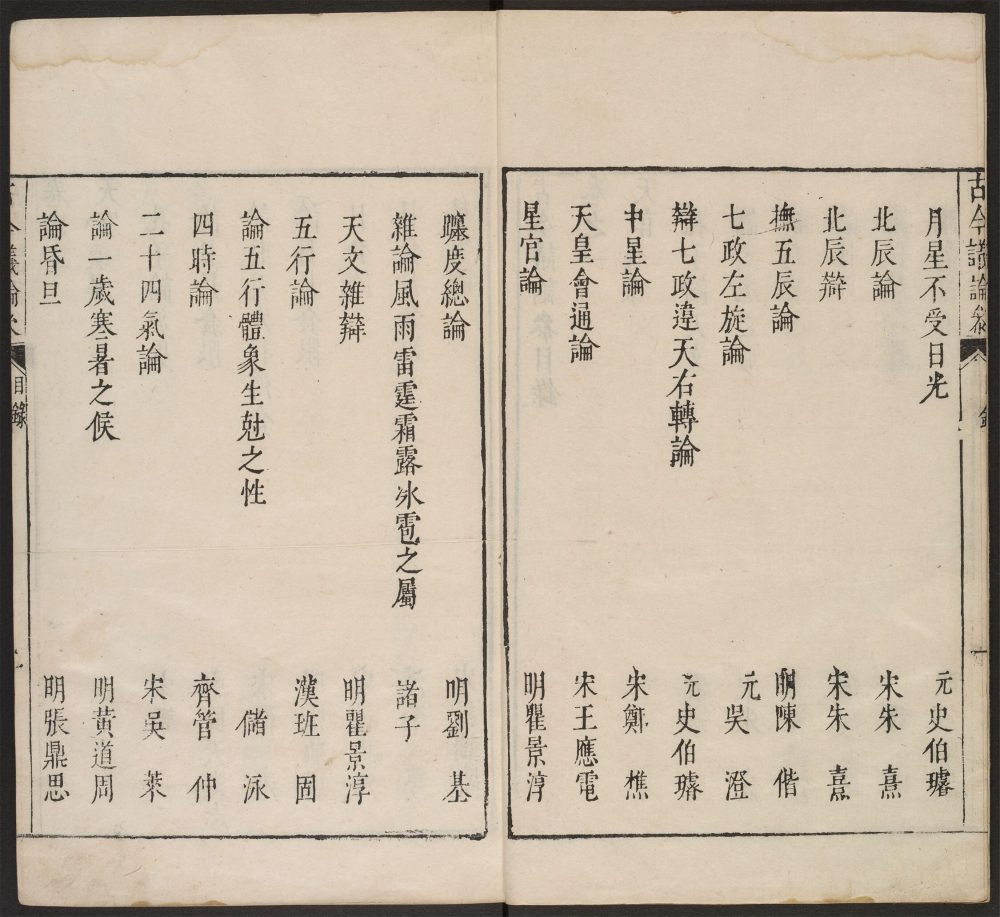 古今議論參
月星不受日光 元史伯璿
北辰論 宋朱熹
北辰辯 宋朱熹
撫五辰論 明陳偕
七政左旋論 元吳澄
辯七政違天右轉論 元史伯璿
中星論 宋鄭樵
天皇會通論 宋王應電
星官論 明瞿景淳
躔度總論 明劉基
雜論風雨雷霆霜露氷雹之屬 諸子
天文雜辯 明瞿景淳
五行論 漢班固
論五行體象生尅之性 儲泳
四時論 齊管仲
二十四氣論 宋吳萊
論一歲寒暑之候 明黃道周
論昏旦 明張鼎思
目錄